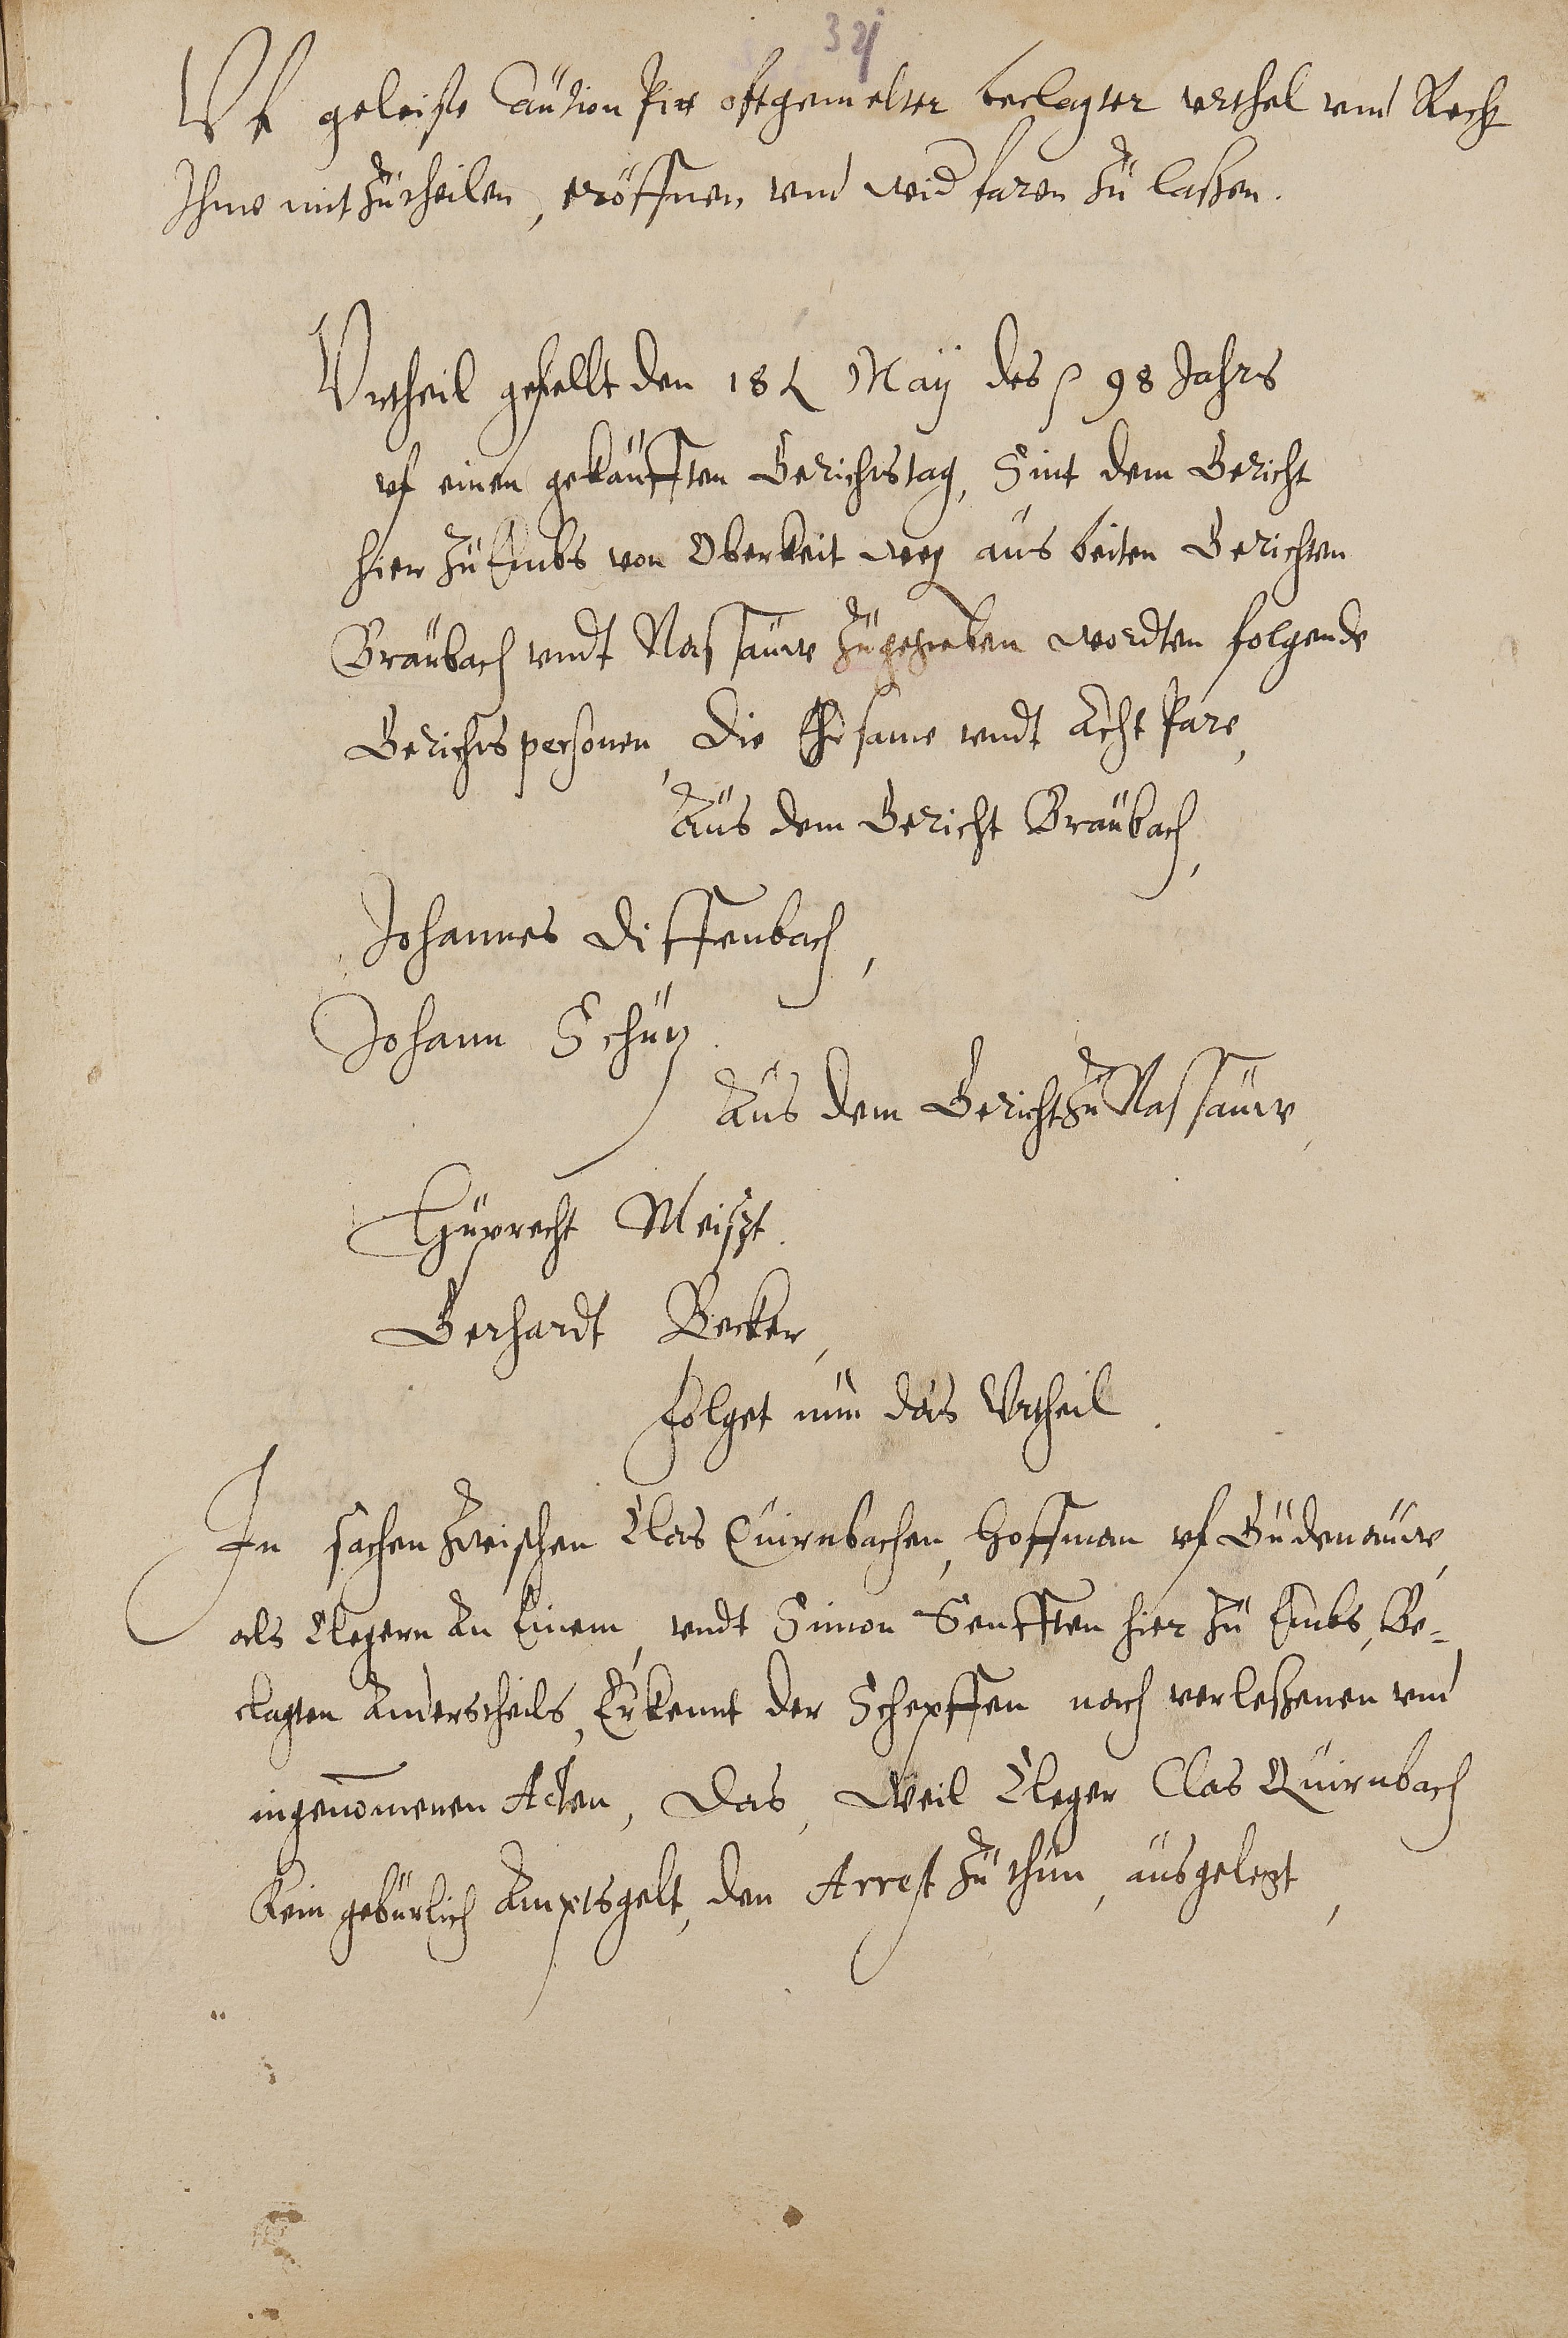 32
Vf geleiste Caution Pitt offtgemelter beclagter vrthel vnd Recht
Ihme mit zutheilen, eröffnen vnd widfaren zu laßen.
Vrtheil gefellt den 18t May des 98 Jahrs
vf einen gekaufften Gerichtstag, Sint dem Gericht
hier zu Embs von Oberkeit weg aus beiten Gerichten
Braubach vndt Nassauw zugegeben wordten folgende
Gerichtspersonen, die Ehrsame vndt Achtpare,
Aus dem Gericht Braubach,
Johannes Diffenbach,
Johann Schutz
Aus dem Gericht zu Nassauw,
Huprecht Meißt.
Gerhardt Becker,
folget nun das Vrtheil
In sachen zwischen Clas Quirnbachen, Hoffman vf Gudenauw,
als Clegern An Einem, vndt Simon Senfften hier zu Embs, Be-
clagten Anderstheils, Erkennt der Schepffen nach verleßenen vnd
ingenomenen Acten, Das, Weil Cleger Clas Quirnbach
Kein gebürlich Amptsgelt, den Arrest zu thun, ausgelegt,